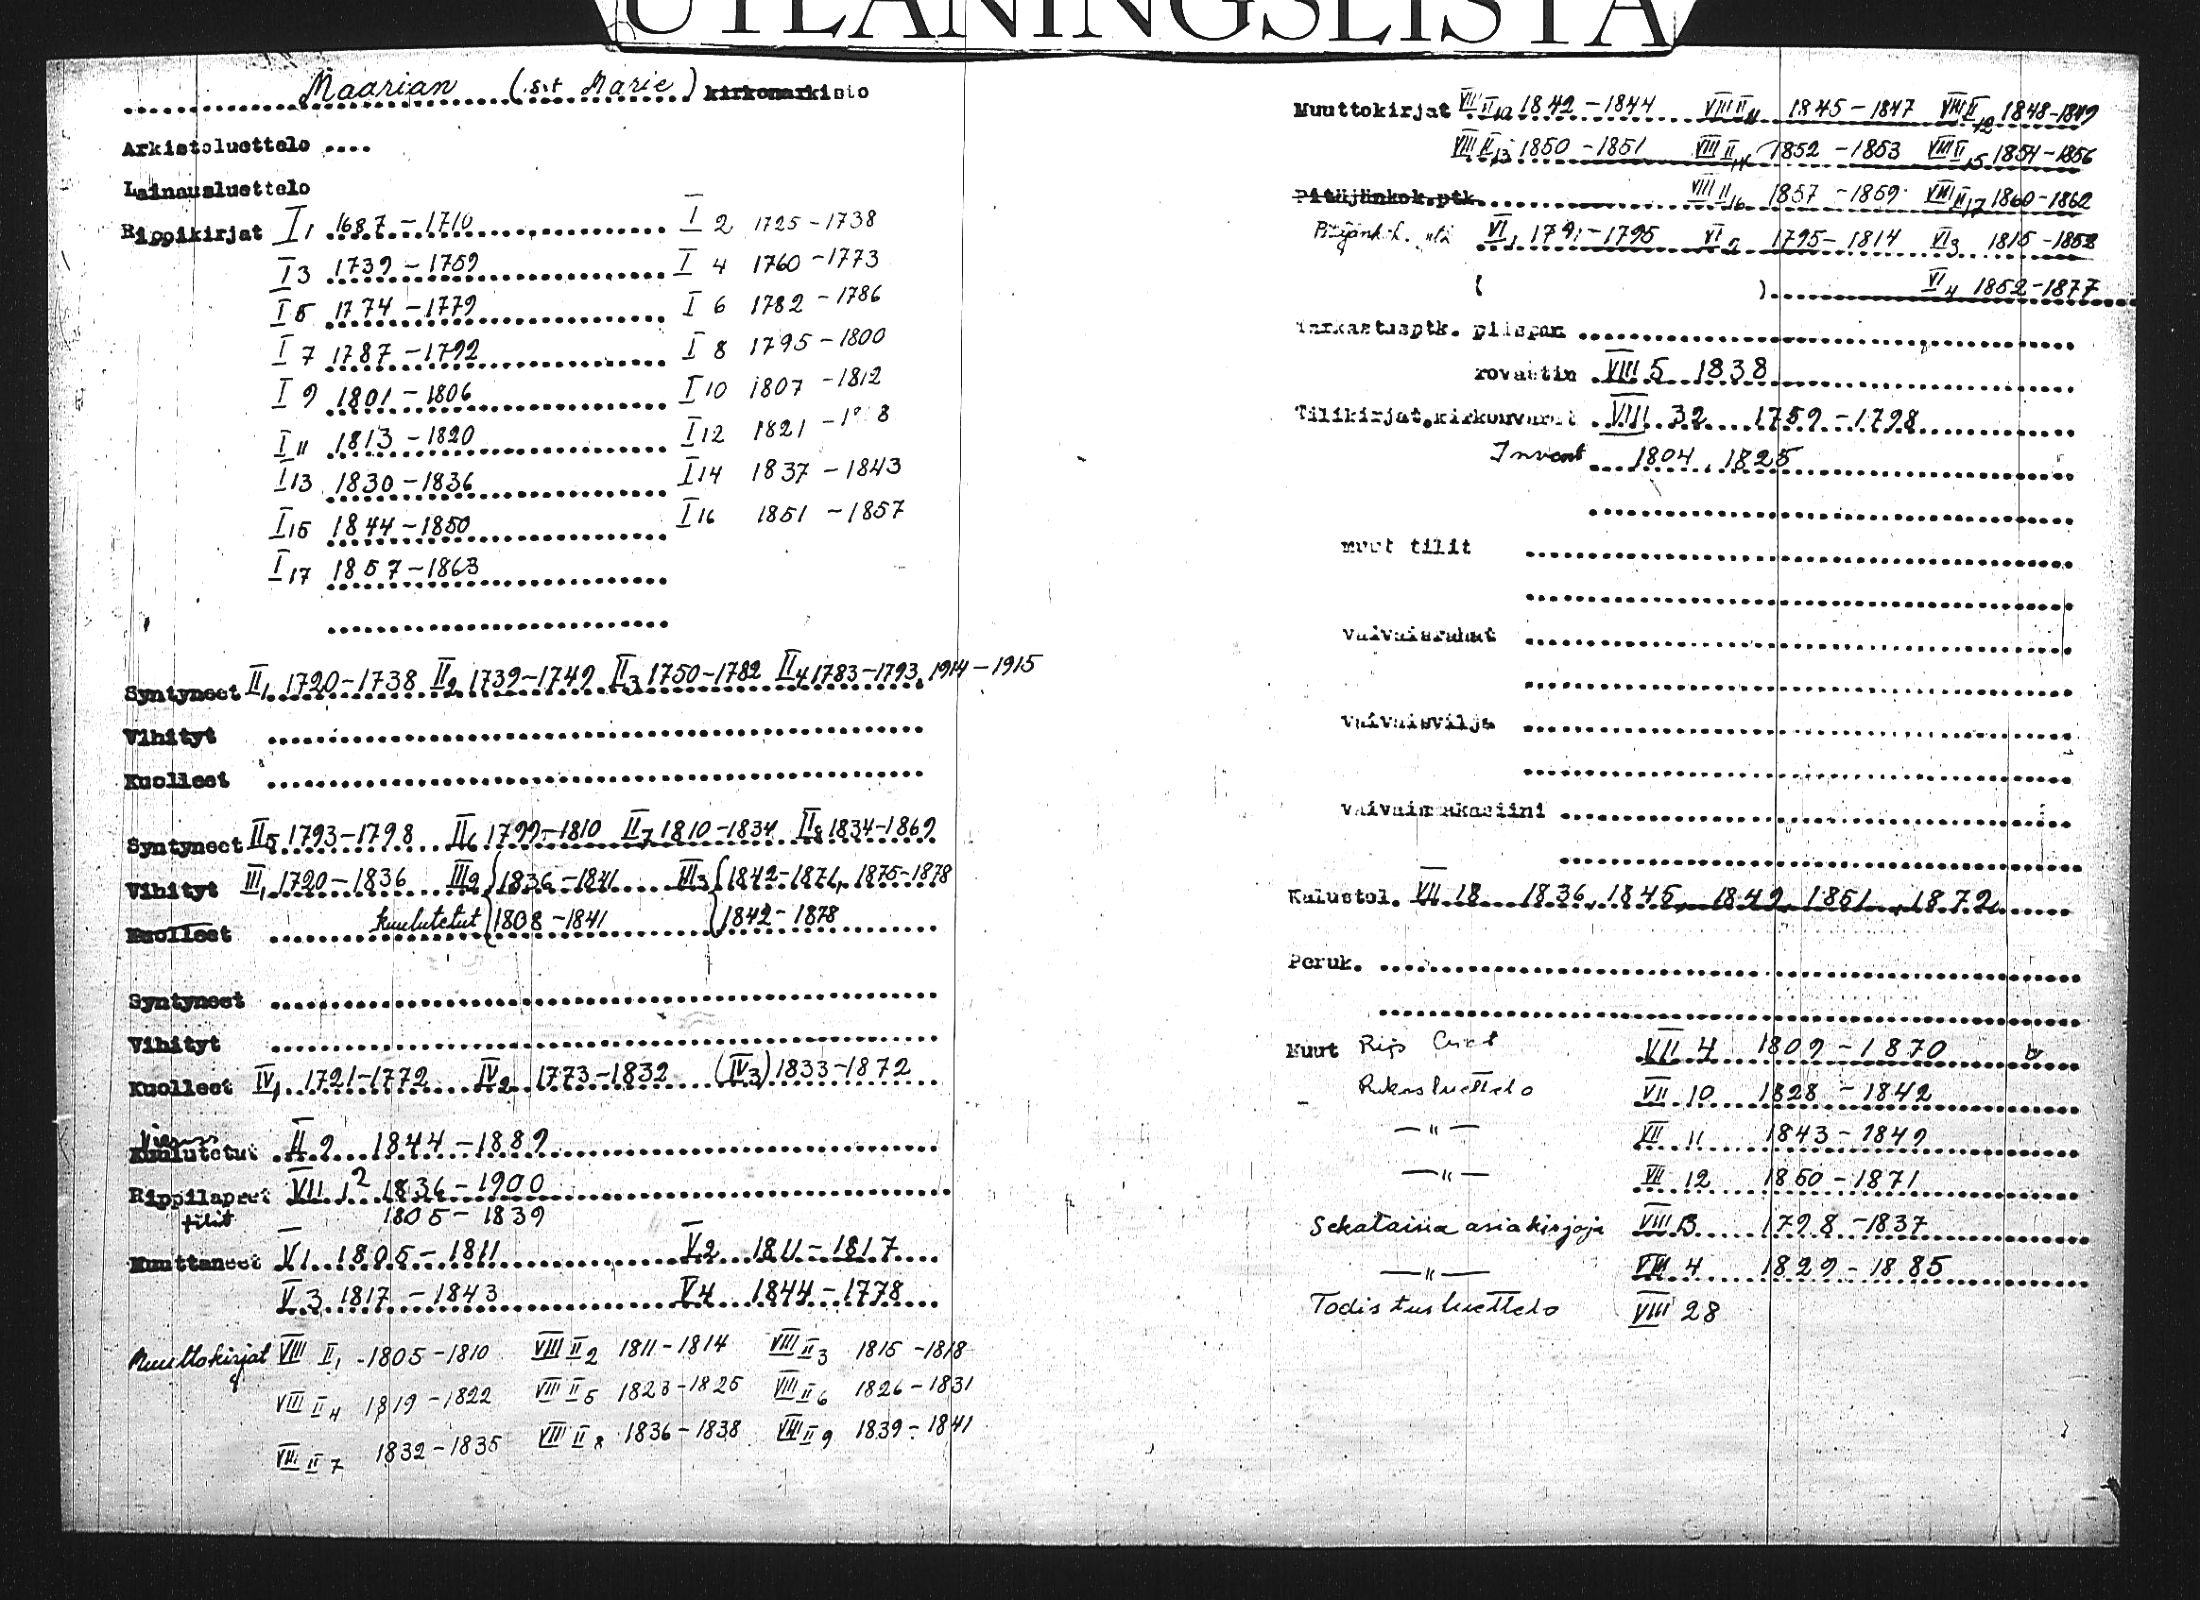 UTLÅNINGSLISTA
Maarian (s:t Marie) kirkonarkisto
Arkistoluettelo ....
Lainausluettelo
Rippikirjat I 1 1687-1710 I 2 1725-1738
I 3 1739-1759 I 4 1760-1773
I 5 1774-1779 I 6 1782-1786
I 7 1787-1792 I 8 1795-1800
I 9 1801-1806 I 10 1807-1812
I 11 1813-1820 I 12 1821-
I 13 1830-1836 I 14 1837-1843
I 15 1844-1850 I 16 1851-1857
I 17 1857-1863
Syntyneet II1 1720-1738 II2 1739-1749 II3 1750-1782 II4 1783-1793, 1914-1915
Vihityt
Kuolleet
Syntyneet II5 1793-1798 II6 1799-1810 II7 1810-1834 II8 1834-1869
Vihityt III1 1720-1836 III2 { 1836-1841 III3 { 1842-1874, 1875-1878
Kuolleet kuulutetut { 1808-1841 { 1842-1878
Syntyneet
Vihityt
Kuolleet IV1 1721-1772 IV2 1773-1832 (IV3) 1833-1872
Kuulutetut II 9 1844-1889
Rippilapset VII 1 2 1836-1900
tilit 1805-1839
Muuttaneet V1 1805-1811 V2 1811-1817
V 3 1817-1843 V4 1844-1778
Muuttokirjat VIII II1 1805-1810 VIII II2 1811-1814 VIII II3 1815-1818
VIII II4 1819-1822 VIII II5 1823-1825 VIII II6 1826-1831
VIII II7 1832-1835 VIII II8 1836-1838 VIII II9 1839-1841
Muuttokirjat VIII II10 1842-1844 VIII II11 1845-1847 VIII II12 1848-1849
VIII II13 1850-1851 VIII II14 1852-1853 VIII II15 1854-1856
Pitäjänkok.ptk. VIII II16 1857-1859 VIII II17 1860-1862
VI1 1791-1795 VI2 1795-1814 VI3 1815-1852
( ) VI4 1852-1877
Tarkastusptk. piispan
rovastin VIII 5 1838
Tilikirjat, kirkonvarat VIII 32 1759-1798
Invent 1804, 1825
muut tilit
vaivaisrahat
vaivaisvilja
vaivaismakasiini
Kalustol. VII 18 1836, 1845, 1849, 1851, 1872
Peruk.
Muut Rip VII 4 1809-1870
Rukasluettelo VII 10 1828-1842
—"— VII 11 1843-1849
—"— VII 12 1850-1871
Sekalaisia asiakirjoja VIII 3 1798-1837
—"— VIII 4 1829-1885
Todistusluettelo VIII 28